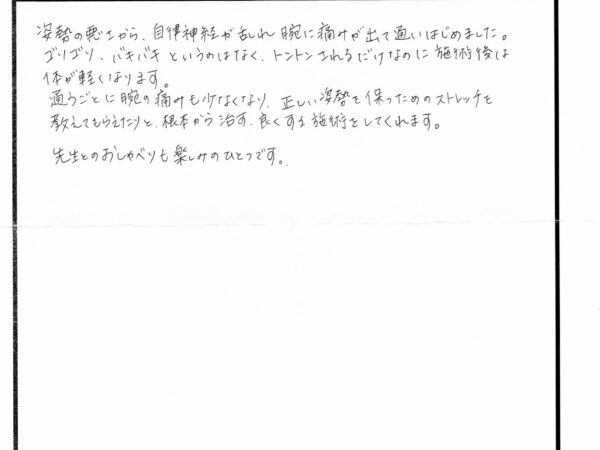 姿勢の悪さから、自律神経が乱れ腕に痛みが出て通いはじめました。
ゴリゴリ、バキバキというのはなく、トントンされるだけなのに施術後は
体が軽くなります。
通うごとに腕の痛みも少なくなり、正しい姿勢を保つためのストレッチを
教えてもらえたりと、根本から治す、良くする施術をしてくれます。
先生とのおしゃべりも楽しみのひとつです。